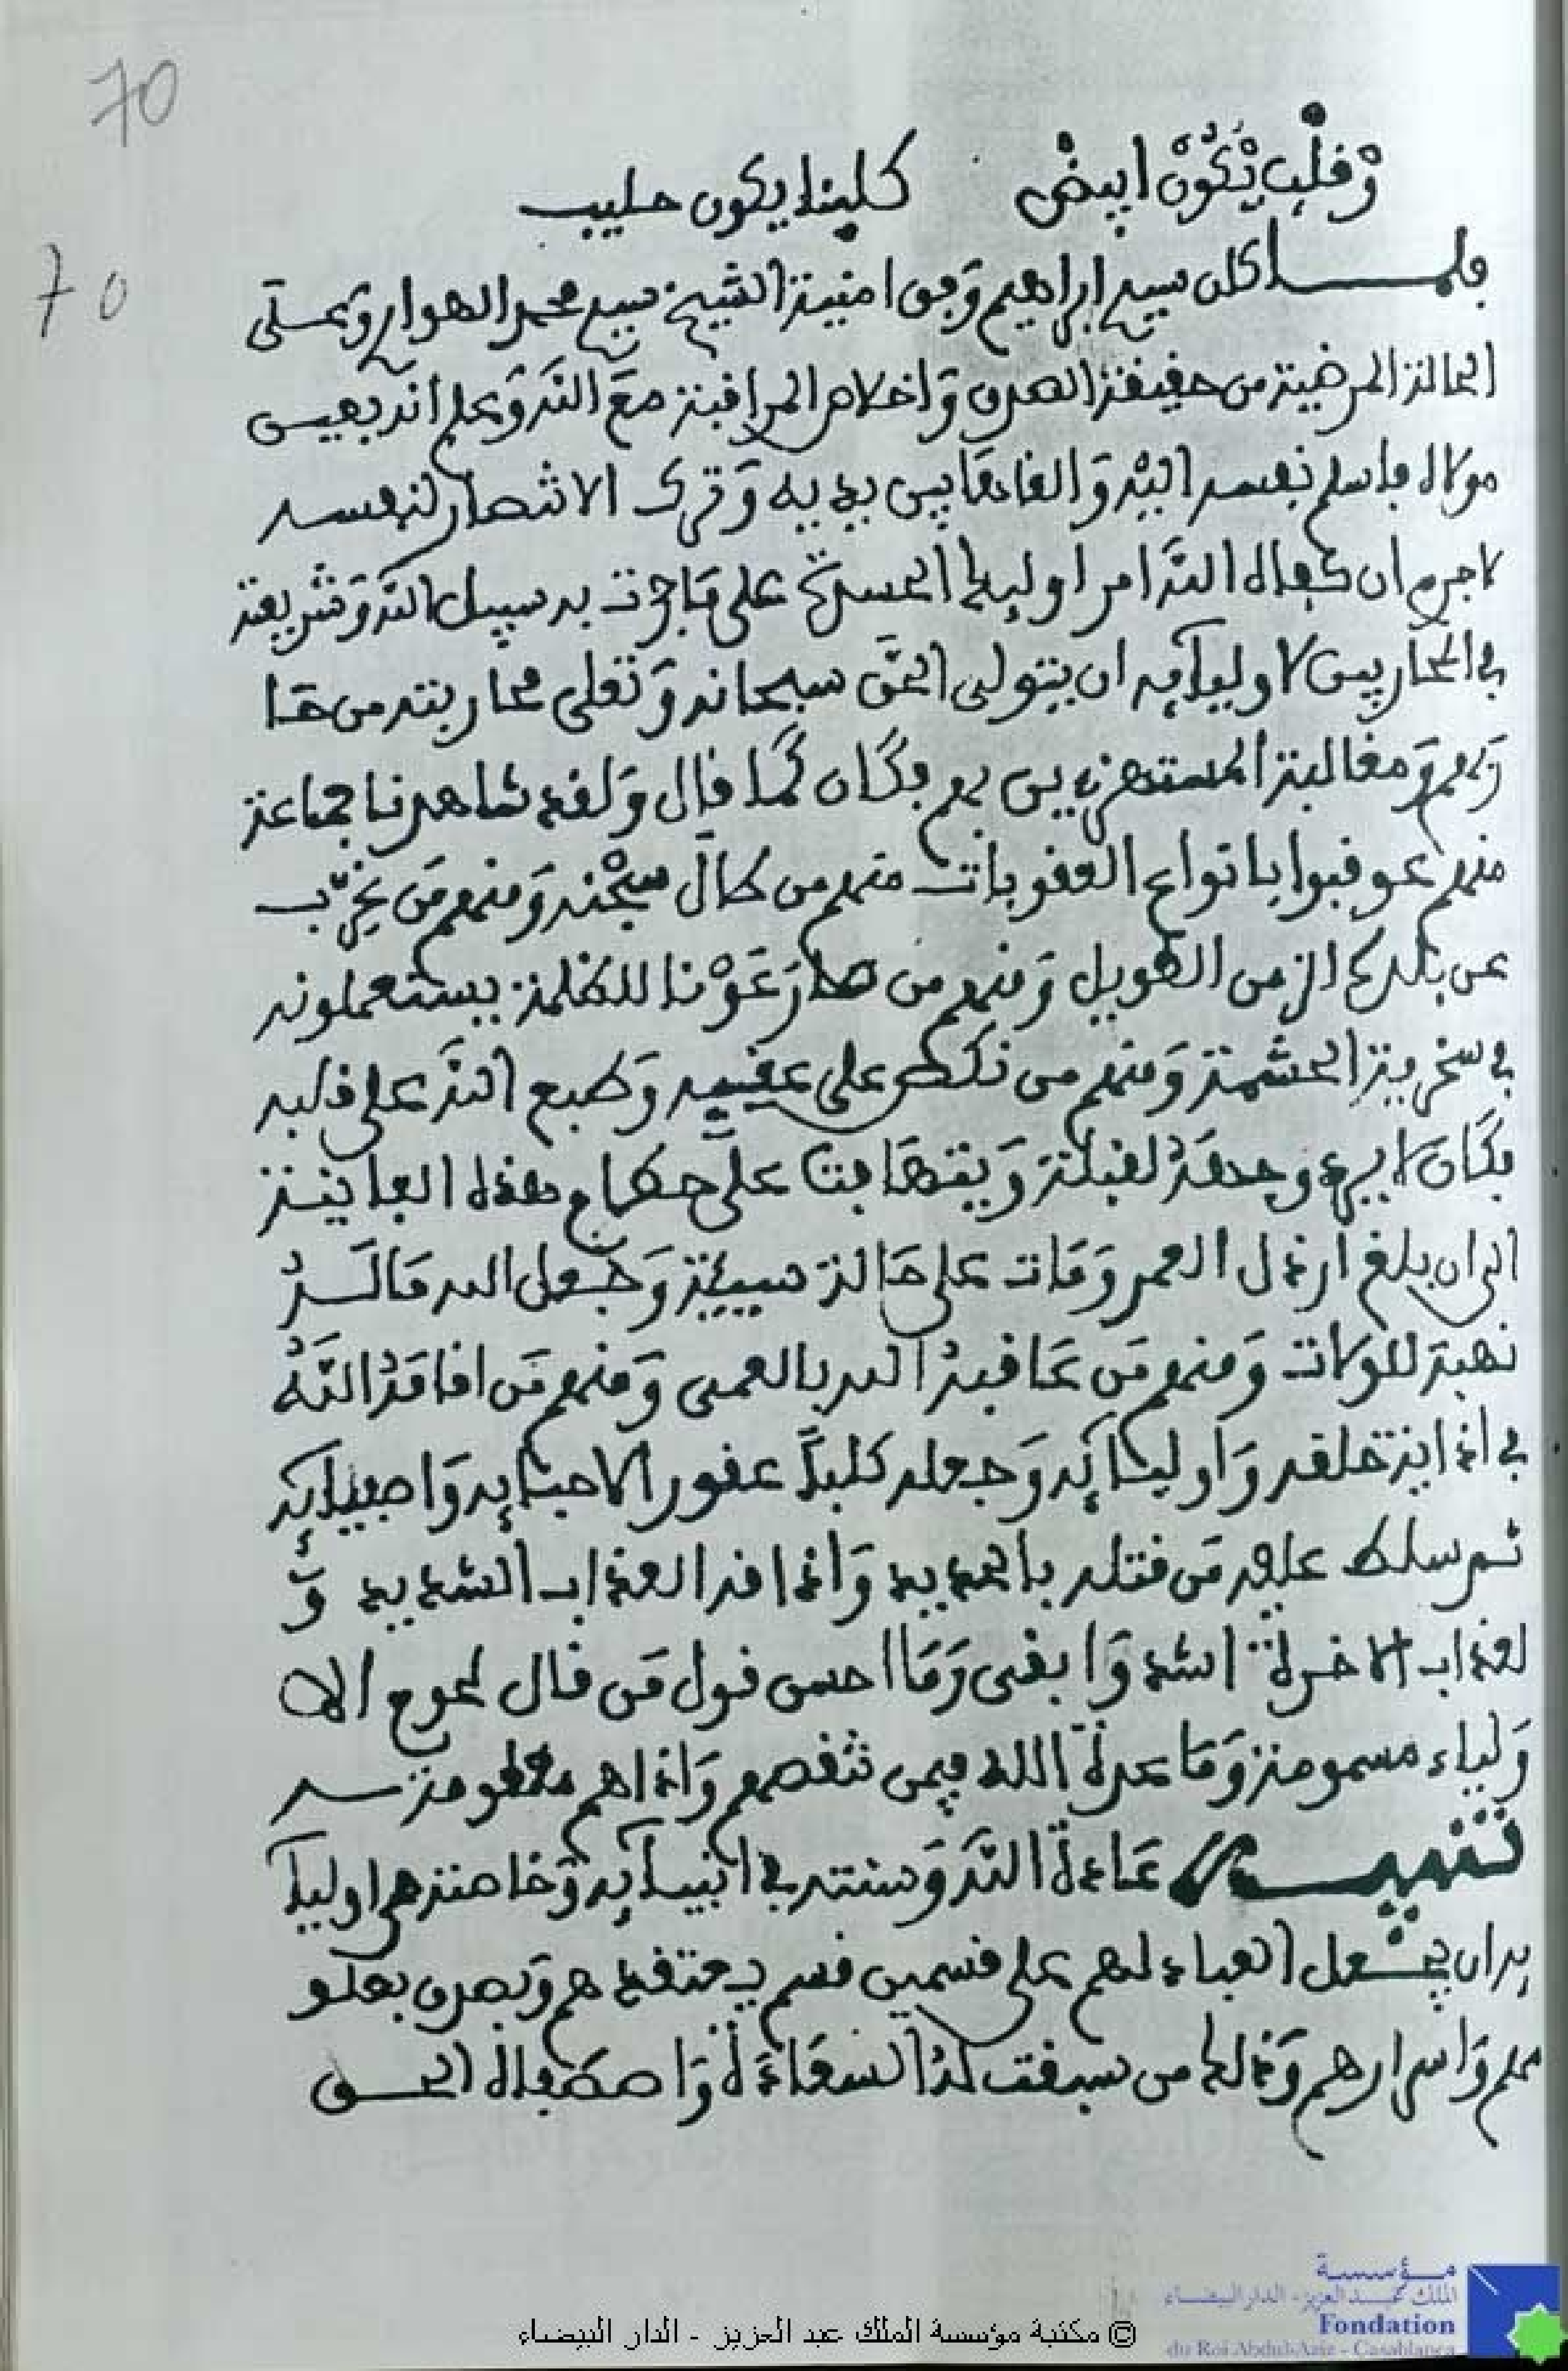 70
وْقلب يْكون ابيض كلبنا يكون حليب
70
فلمـــا كان سيدي ابراهيم وَفق امنية الشيخ سيدي محمد الهواري وعلى
الحالة المرضية من حقيقة الصدق وَاخلاص المراقبة مَعَ اللَه وَعلم انه بعيس
مولاه فاسلم نفسه اليْه وَالقاهَا بين يديه وَترك الانتصار لنفسه
لا جرم ان كفاه اللَه امر اوليك الحسدة على مَا جرت به سبيل اللَه وَشريعته
في المحاربين لاوليآيه ان يتولى الحَق سبحانه وَتعلى محاربته من حَا
رَبهم وَمغالبة المستهزيين بهم فكَان كمَا قال وَلقد شاهدنا جماعة
منهم عوقبوا بانواع العقوبات منهم من طال سجْنه وَمنهم مَن غرّب
عن بلده الزمن الطويل وَمنهم من صَارَ عَوْنا للظلمة يستعملونه
في سخرية الحشمة وَمنهم من نكص على عقبيه وَطبع اللَه على قلبه
فكَان لا يرد وجهَهُ لقبلة وَيتهَافت على حطام هذه الفانية
الى ان بلغ ارذل العمر وَمَات على حَالة سييئة وَجعل الله مَالَــهُ
نهبة للولات وَمنهم مَن عَاقبهُ الله بالعمى وَمنهم مَن اقامَهُ اللَهُ
في اذاية خلقه وَاوليآيه وَجعله كلباً عقور الاحبآيه وَاصفيآيه
ثم سلط عليه مَن قتله بالحديد وَاذاقه العذاب الشديد وَ
لعذاب الاخرة اشد وَابقى وَمَا احسن قول مَن قال لحوم الا
وَلياء مسمومة وَعادة الله فيمن تنقصهم وَاذاهم معلومة
تنبيــــه عَادة اللَه وَسنته في انبيآيه وَخاصته اوليآ
يه ان يجْـعل العباد لهم على قسمين قسم يعتقدهم وَيصدق بعلو
مهم وَاسرارهم وَذلك من سبقت لهُ السعَادَة وَاصطفاه الحــق
© مكتبة مؤسسة الملك عبد العزيز - الدار البيضاء
مؤسسة
الملك عبد العزيز - الدار البيضاء
Fondation
du Roi Abdul-Aziz - Casablanca